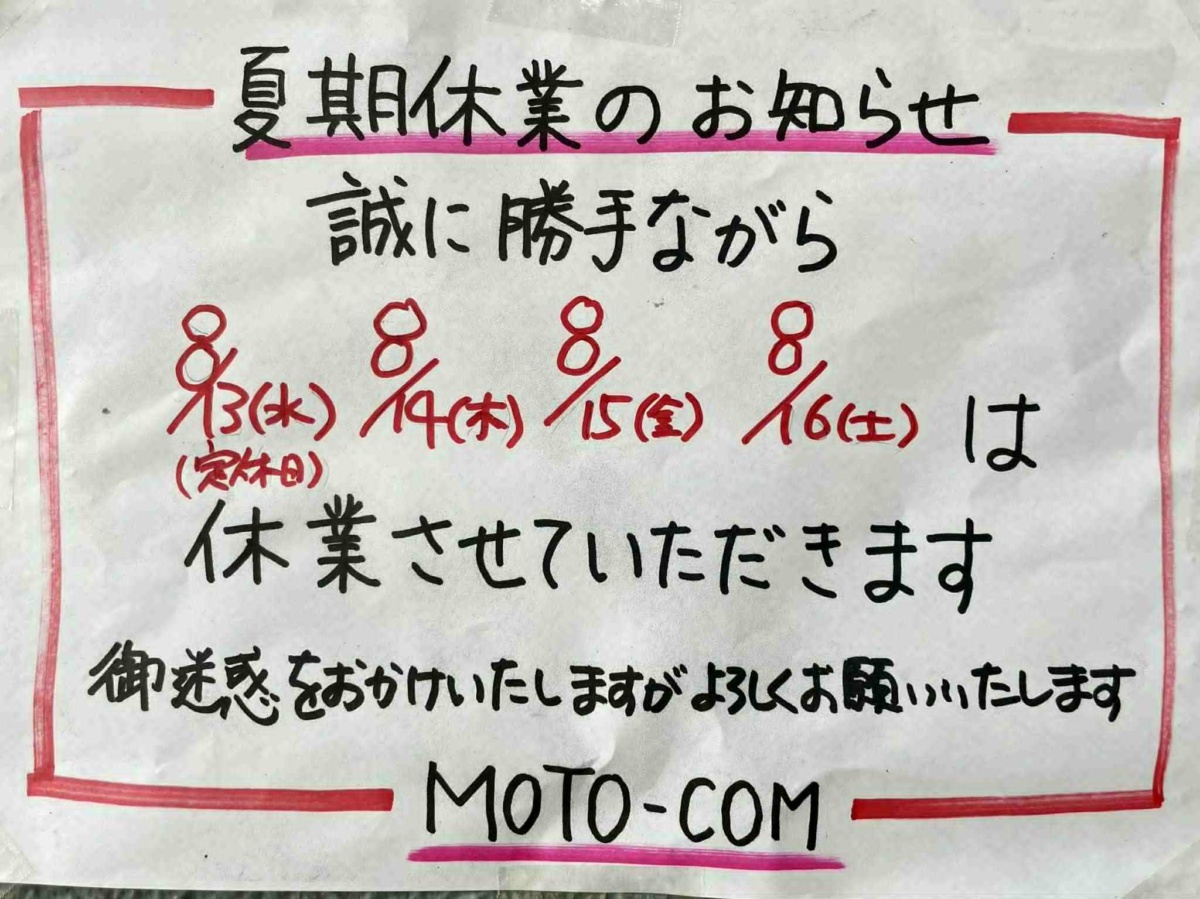 夏期休業のお知らせ
誠に勝手ながら
8/13(水) 8/14(木) 8/15(金) 8/16(土) は
(定休日)
休業させていただきます
御迷惑をおかけいたしますがよろしくお願いいたします
MOTO-COM